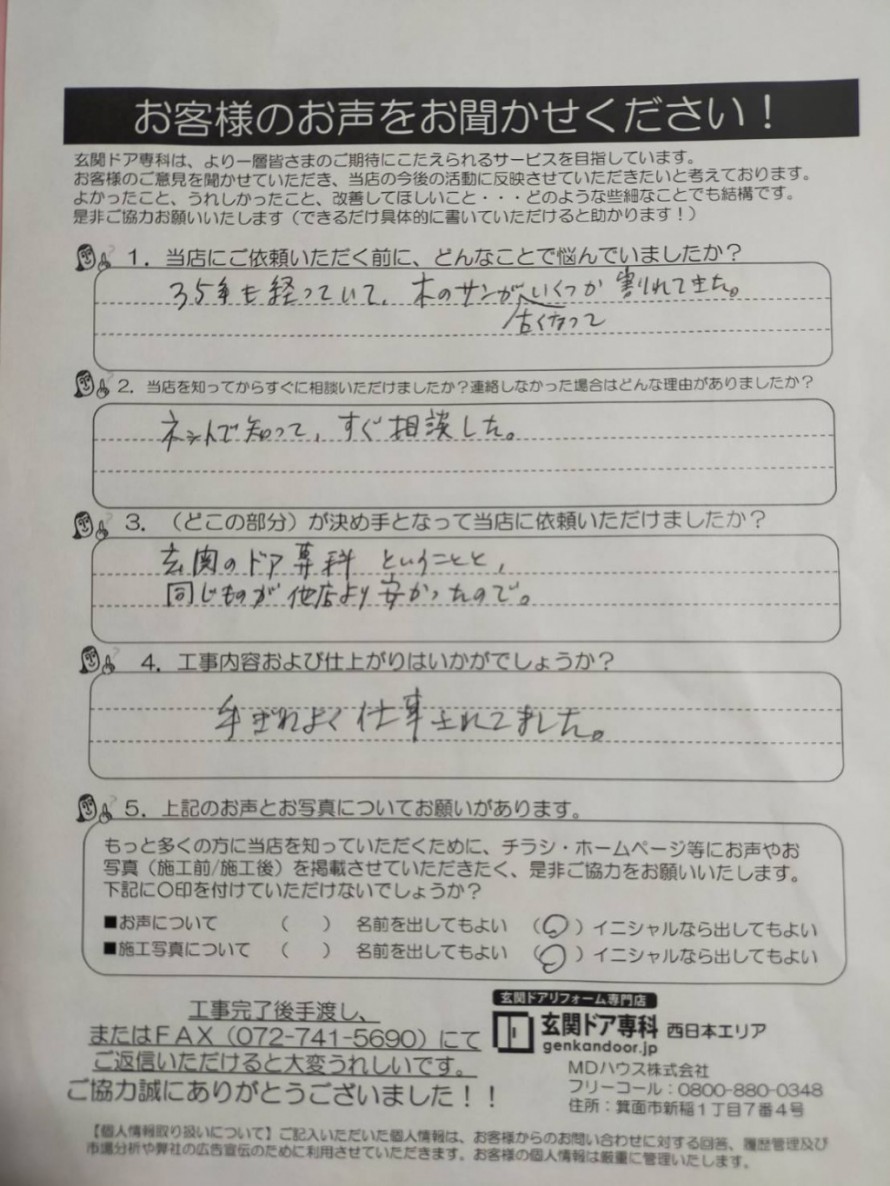 お客様のお声をお聞かせください！
玄関ドア専科は、より一層皆さまのご期待にこたえられるサービスを目指しています。
お客様のご意見を聞かせていただき、当店の今後の活動に反映させていただきたいと考えております。
よかったこと、うれしかったこと、改善してほしいこと・・・どのような些細なことでも結構です。
是非ご協力お願いいたします（できるだけ具体的に書いていただけると助かります！）
1．当店にご依頼いただく前に、どんなことで悩んでいましたか？
35年も経っていて、木のサンがいくつか割れてきた。
古くなって
2．当店を知ってからすぐに相談いただけましたか？連絡しなかった場合はどんな理由がありましたか？
ネットで知って、すぐ相談した。
3．（どこの部分）が決め手となって当店に依頼いただけましたか？
玄関のドア専科ということと、
同じものが他店より安かったので。
4．工事内容および仕上がりはいかがでしょうか？
手ぎわよく仕事されてました。
5．上記のお声とお写真についてお願いがあります。
もっと多くの方に当店を知っていただくために、チラシ・ホームページ等にお声やお
写真（施工前/施工後）を掲載させていただきたく、是非ご協力をお願いいたします。
下記に〇印を付けていただけないでしょうか？
■お声について （ ） 名前を出してもよい （〇）イニシャルなら出してもよい
■施工写真について （ ） 名前を出してもよい （〇）イニシャルなら出してもよい
工事完了後手渡し、
またはFAX（072-741-5690）にて
ご返信いただけると大変うれしいです。
ご協力誠にありがとうございました！！
玄関ドアリフォーム専門店
玄関ドア専科 西日本エリア
genkandoor.jp
MDハウス株式会社
フリーコール：0800-880-0348
住所：箕面市新稲1丁目7番4号
【個人情報取り扱いについて】ご記入いただいた個人情報は、お客様からのお問い合わせに対する回答、履歴管理及び
市場分析や弊社の広告宣伝のために利用させていただきます。お客様の個人情報は厳重に管理いたします。